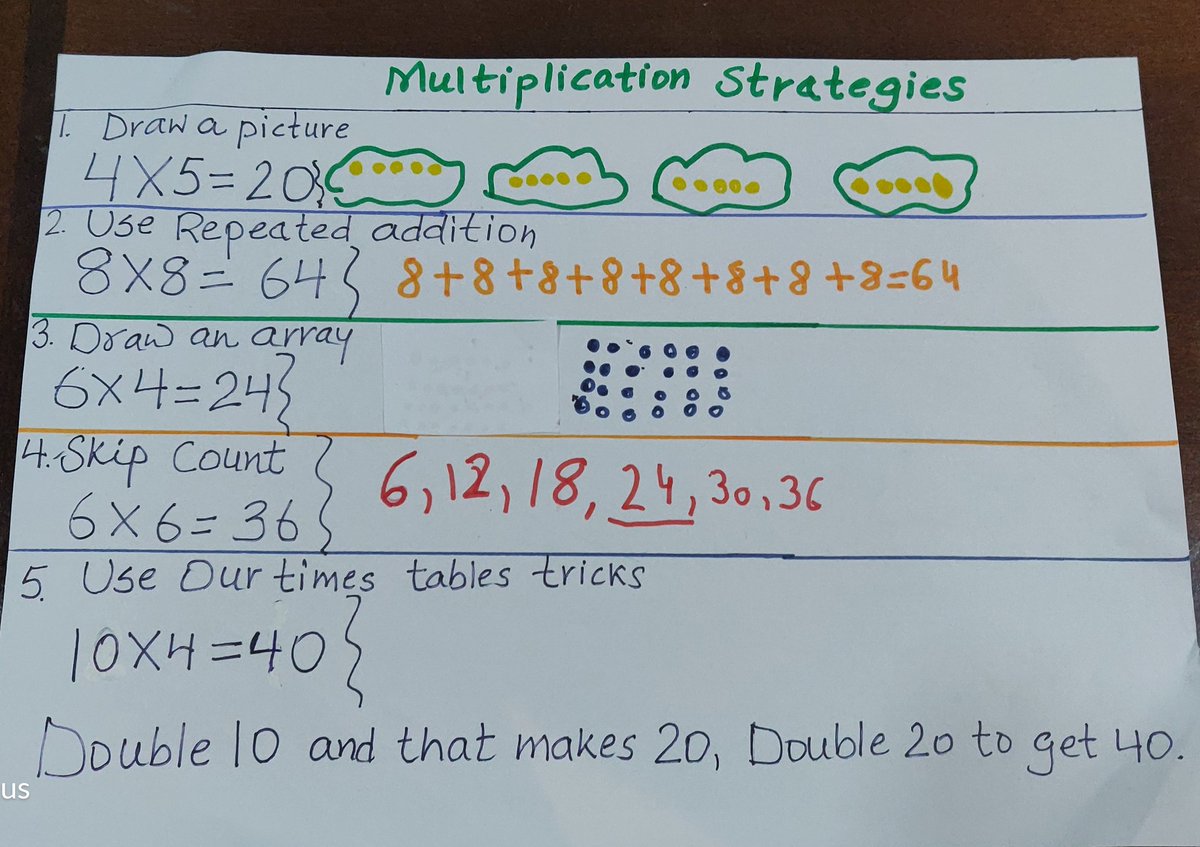 Multiplication Strategies
1. Draw a picture
4X5=20}
2. Use Repeated addition
8X8= 64} 8+8+8+8+8+8+8+8=64
3. Draw an array
6X4=24}
4. Skip Count
6X6=36} 6, 12, 18, 24, 30, 36
5. Use Our times tables tricks
10X4=40}
Double 10 and that makes 20, Double 20 to get 40.
us